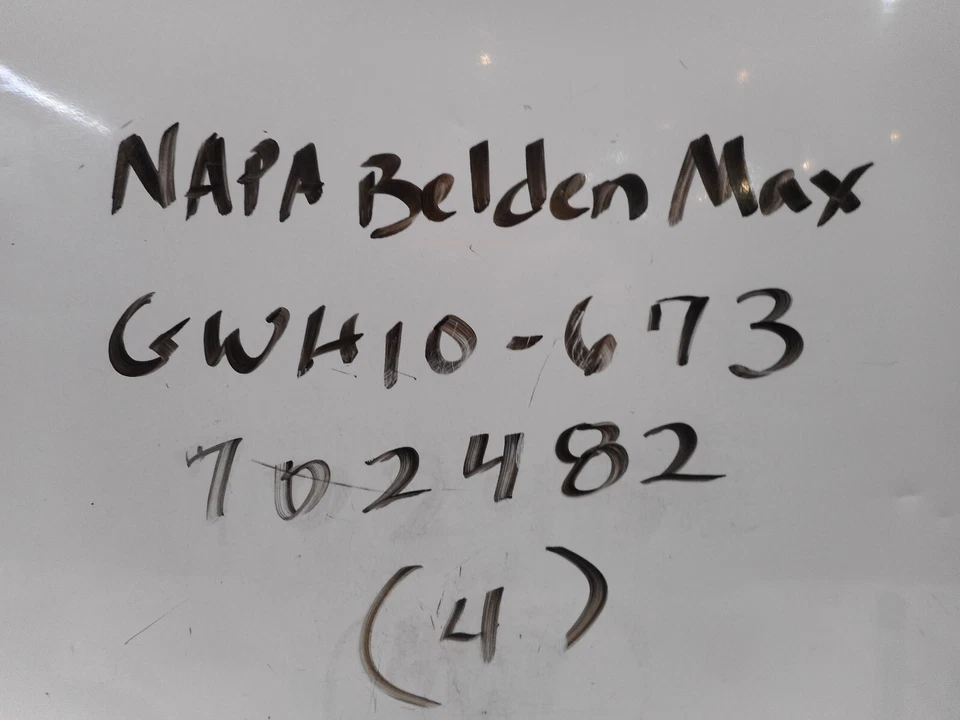 NAPA Belden Max
GWH10-673
702482
(4)